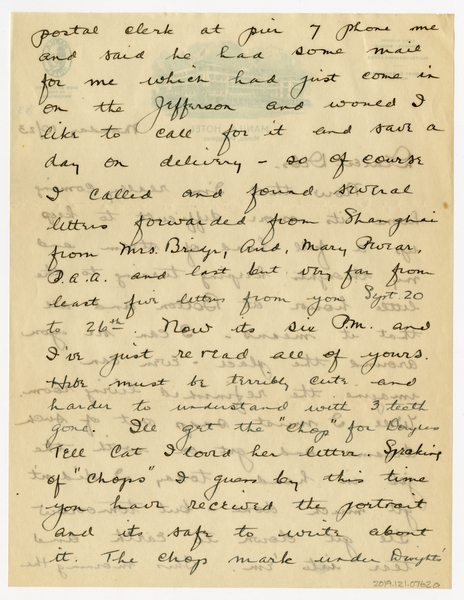 postal clerk at pier 7 phone me
and said he had some mail
for me which had just come in
on the Jefferson and wouned I
like to call for it and save a
day on delivery – so of course
I called and found several
letters forwarded from Shanghai
from Mrs. Bridge, And, Mary
D.a.a. and last but very far from
least five letters from you Sept. 20
to 26th. Now its six P.M. and
I've just reread all of yours.
must be terribly cute and
harder to understand with 3 teeth
gone. I'll get the "chop" for
Tell Cat I loved her letter. Speaking
of "chops" I guess by this time
you have received the portrait
and its safe to write about
it. The chop mark under Dwights'
2019.121.0762G